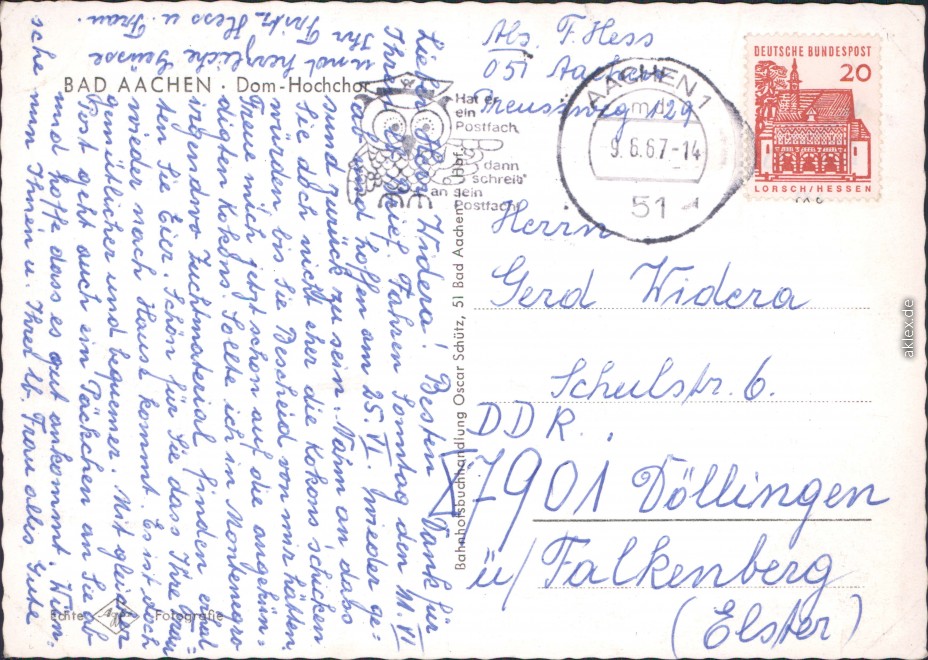 BAD AACHEN · Dom-Hochchor
Abs. F. Hess
051 Aachen
Preusweg 129
AACHEN 1
md
9.6.67-14
51
Hat er
ein
Postfach,
dann
schreib'
an sein
Postfach!
DEUTSCHE BUNDESPOST
20
LORSCH/HESSEN
Herrn
Gerd Widera
Schulstr. 6.
DDR.
X7901 Döllingen
ü/Falkenberg
(Elster)
Lieber Widera! Besten Dank für
Ihren Brief. Fahren Sonntag den 11. VI
ab und hoffen am 25. VI. wieder ge-
sund zurück zu sein. Nahm an dass
Sie doch nicht eher die Kokons schicken
würden, bis Sie Bescheid von mir hätten.
Freue mich jetzt schon auf die angekün-
digten Kokons. Sollte ich in Montenegro
irgendwo Zuchtmaterial finden erhal-
ten Sie Eier. Schön für Sie dass Ihre Frau
wieder nach Haus kommt. Es ist doch
gemütlicher und bequemer. Mit gleicher
Post geht auch ein Päckchen an Sie ab
und hoffe dass es gut ankommt. Wün-
sche nun Ihnen u. Ihrer lb. Frau alles Gute
u. nol herzliche Grüsse
Ihr Fritz Hess u. Frau.
Bahnhofsbuchhandlung Oscar Schütz, 51 Bad Aachen, Hbf.
Echte Agfa Fotografie
aklex.de